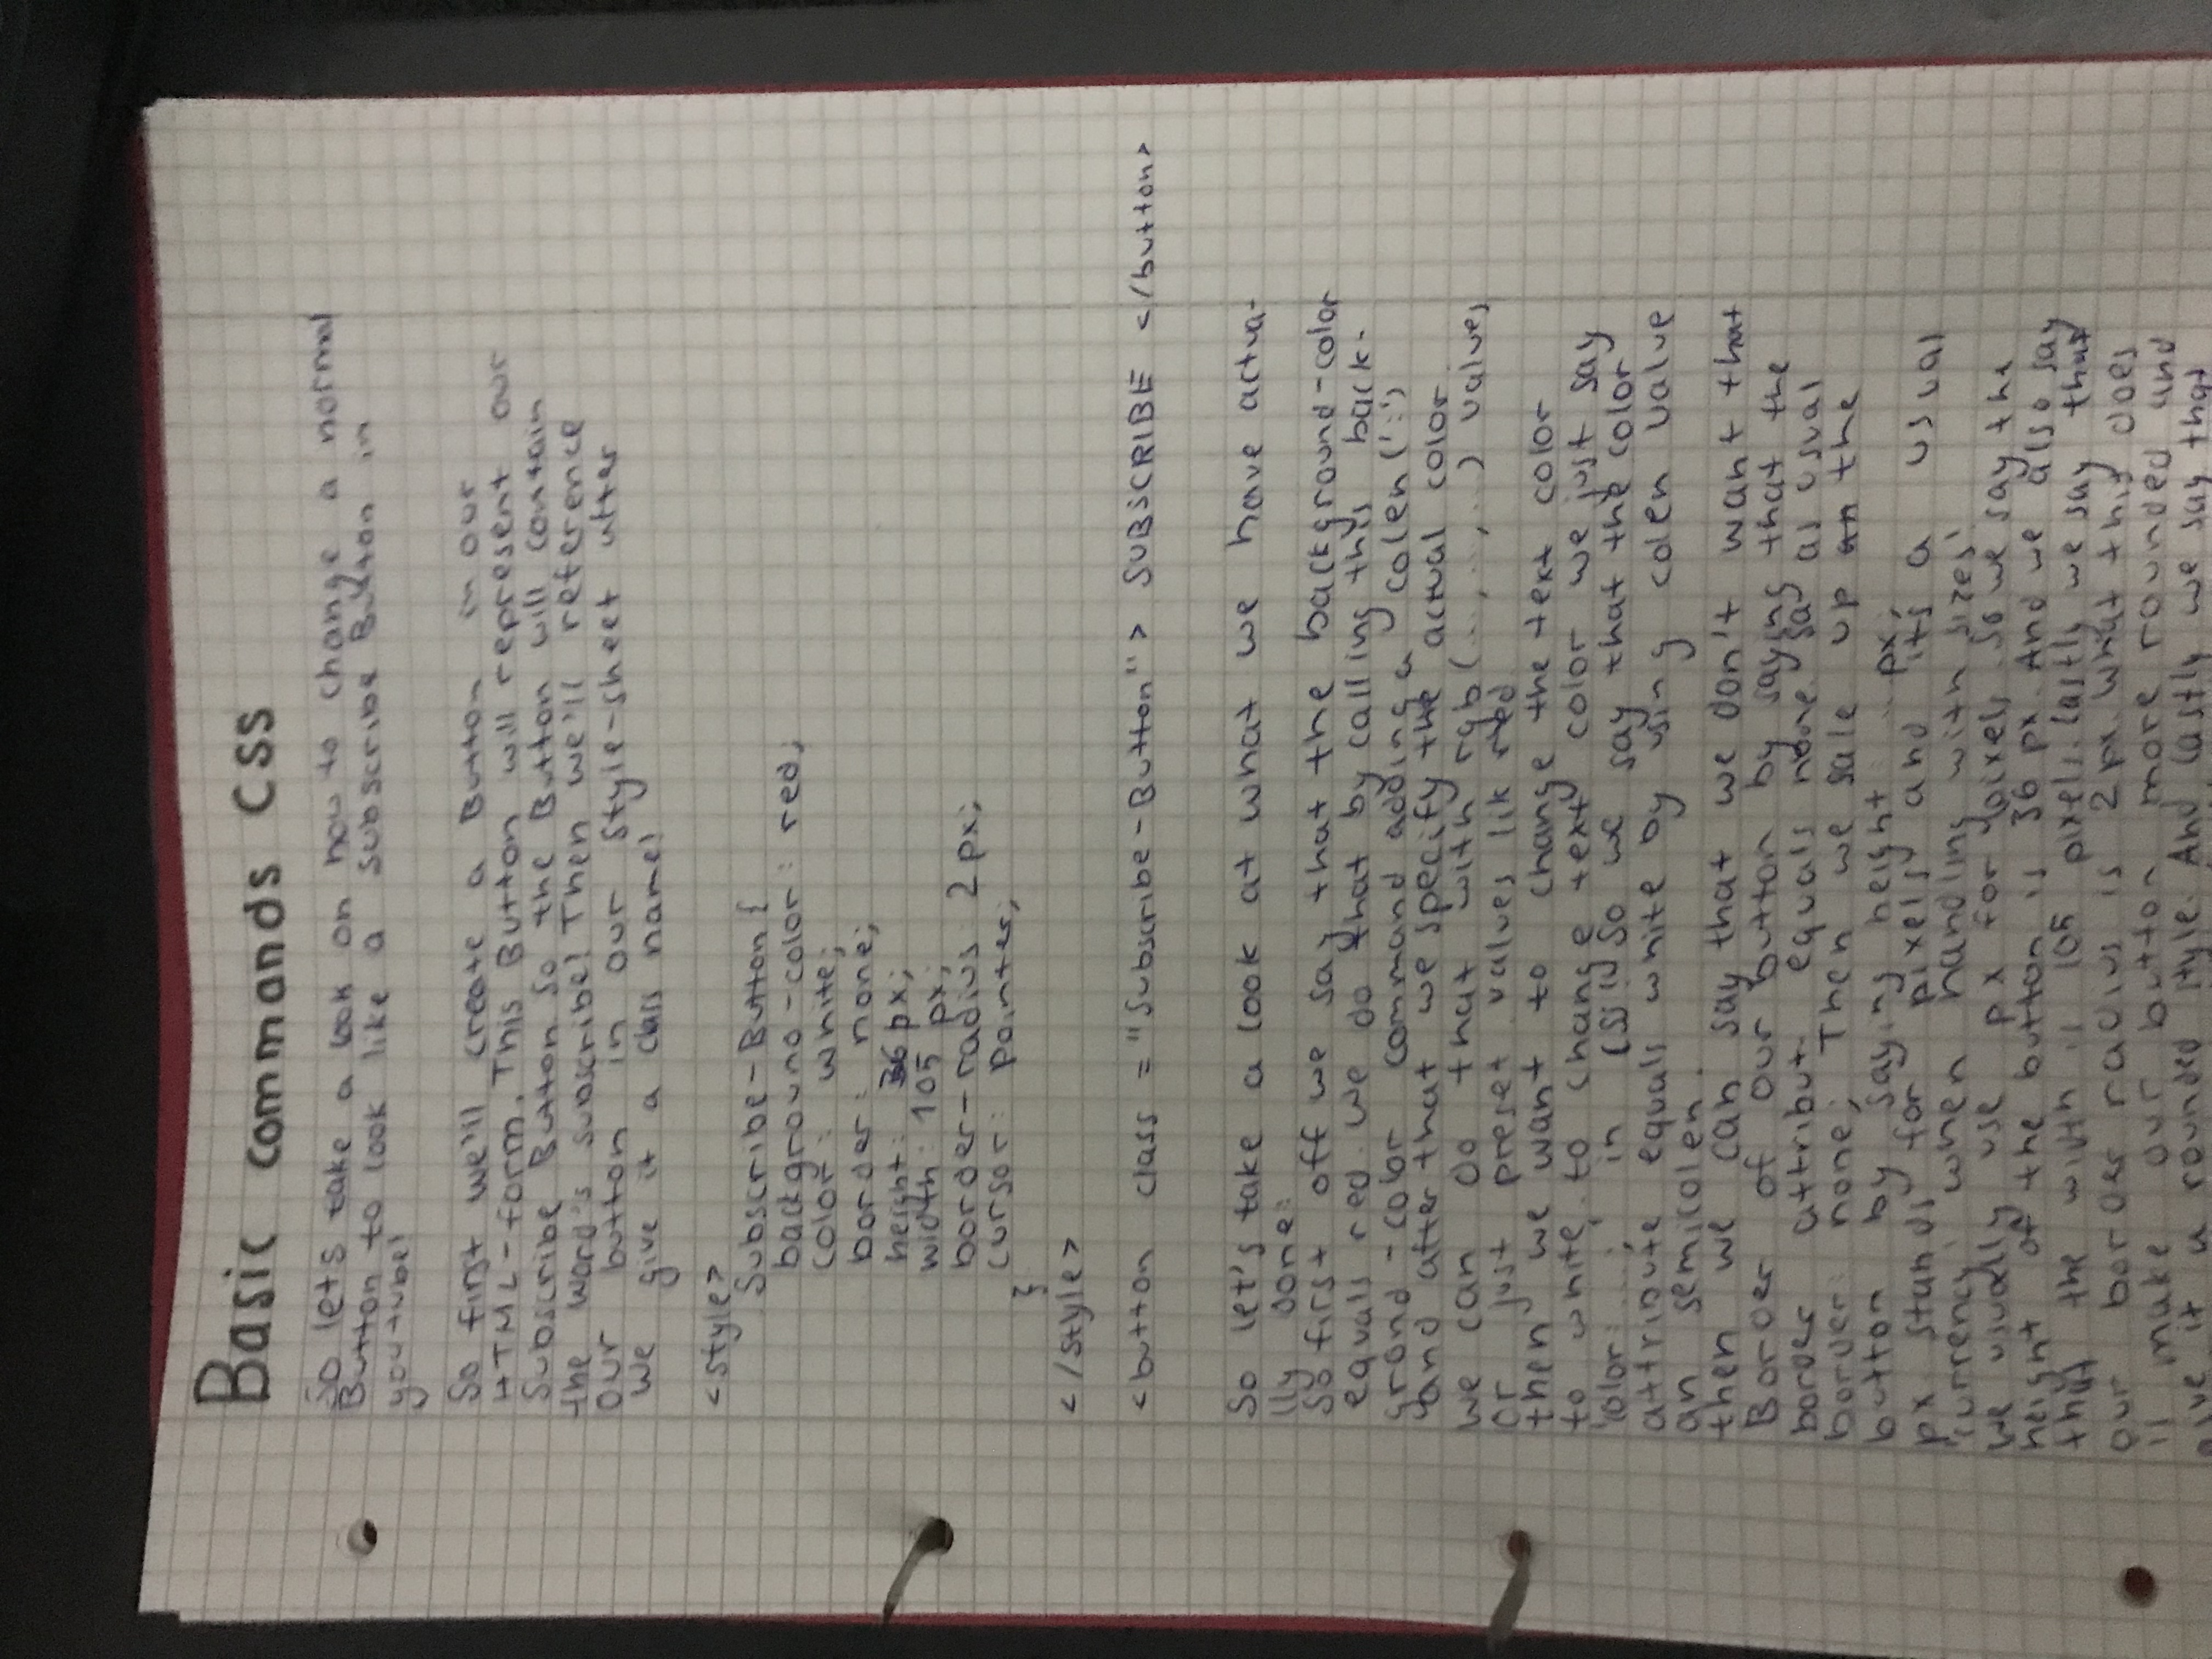 Basic commands CSS
So lets take a look on how to change a normal
Button to look like a subscribe Button in
youtube!
So first we'll create a Button in our
HTML-form. This Button will represent our
Subscribe Button. So the Button will contain
the word's subscribe! Then we'll reference
our button in our style-sheet after
we give it a class name!
<style>
Subscribe-Button {
background-color: red;
color: white;
border: none;
height: 36 px;
width: 105 px;
border-radius 2 px;
cursor: pointer;
}
</style>
<button class = "Subscribe-Button"> SUBSCRIBE </button>
So let's take a look at what we have actua-
lly done:
So first off we say that the background-color
equals red. We do that by calling this back-
grond-color command adding a colen (':')
and after that we specify the actual color.
we can do that with rgb(..,..,..) values
or just preset values lik red
then we want to change the text color
to white. to change text color we just say
'color: ...;' in CSS! So we say that the color
attribute equals white by using colen value
an semicolen.
then we can say that we don't want that
Border of our button by saying that the
border attribut equals none. So as usual
border: none; Then we sale up the
button by saying height .. px;
px stands for pixels and its a usual
'currency' when handling with sizes!
We usually use px for pixels. So we say the
height of the button is 36 px. And we also say
that the width is 105 pixels. Lastly we say that
our border radius is 2px. What this does
make our button more rounded and
give it a rounded style. And lastly we say that